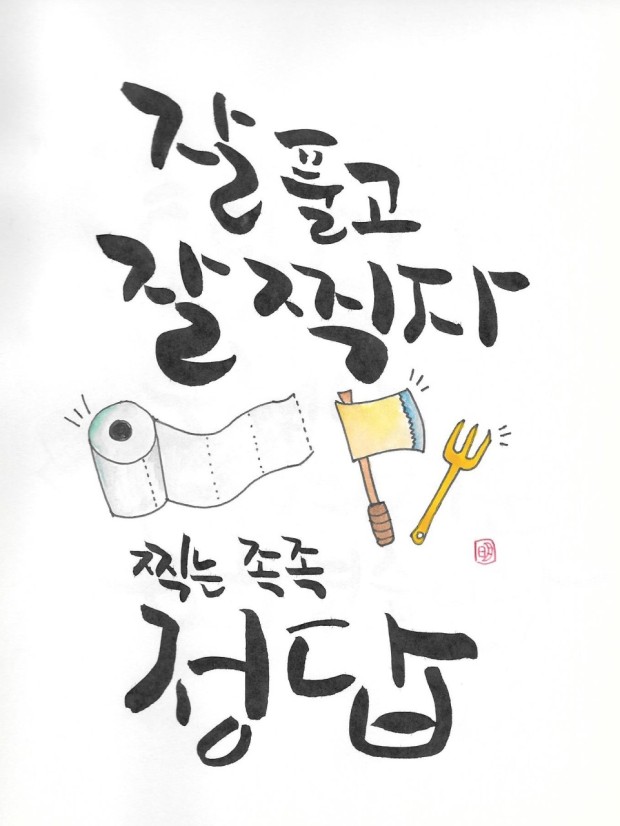 잘 풀고
잘 찍자
찍는 족족
정답